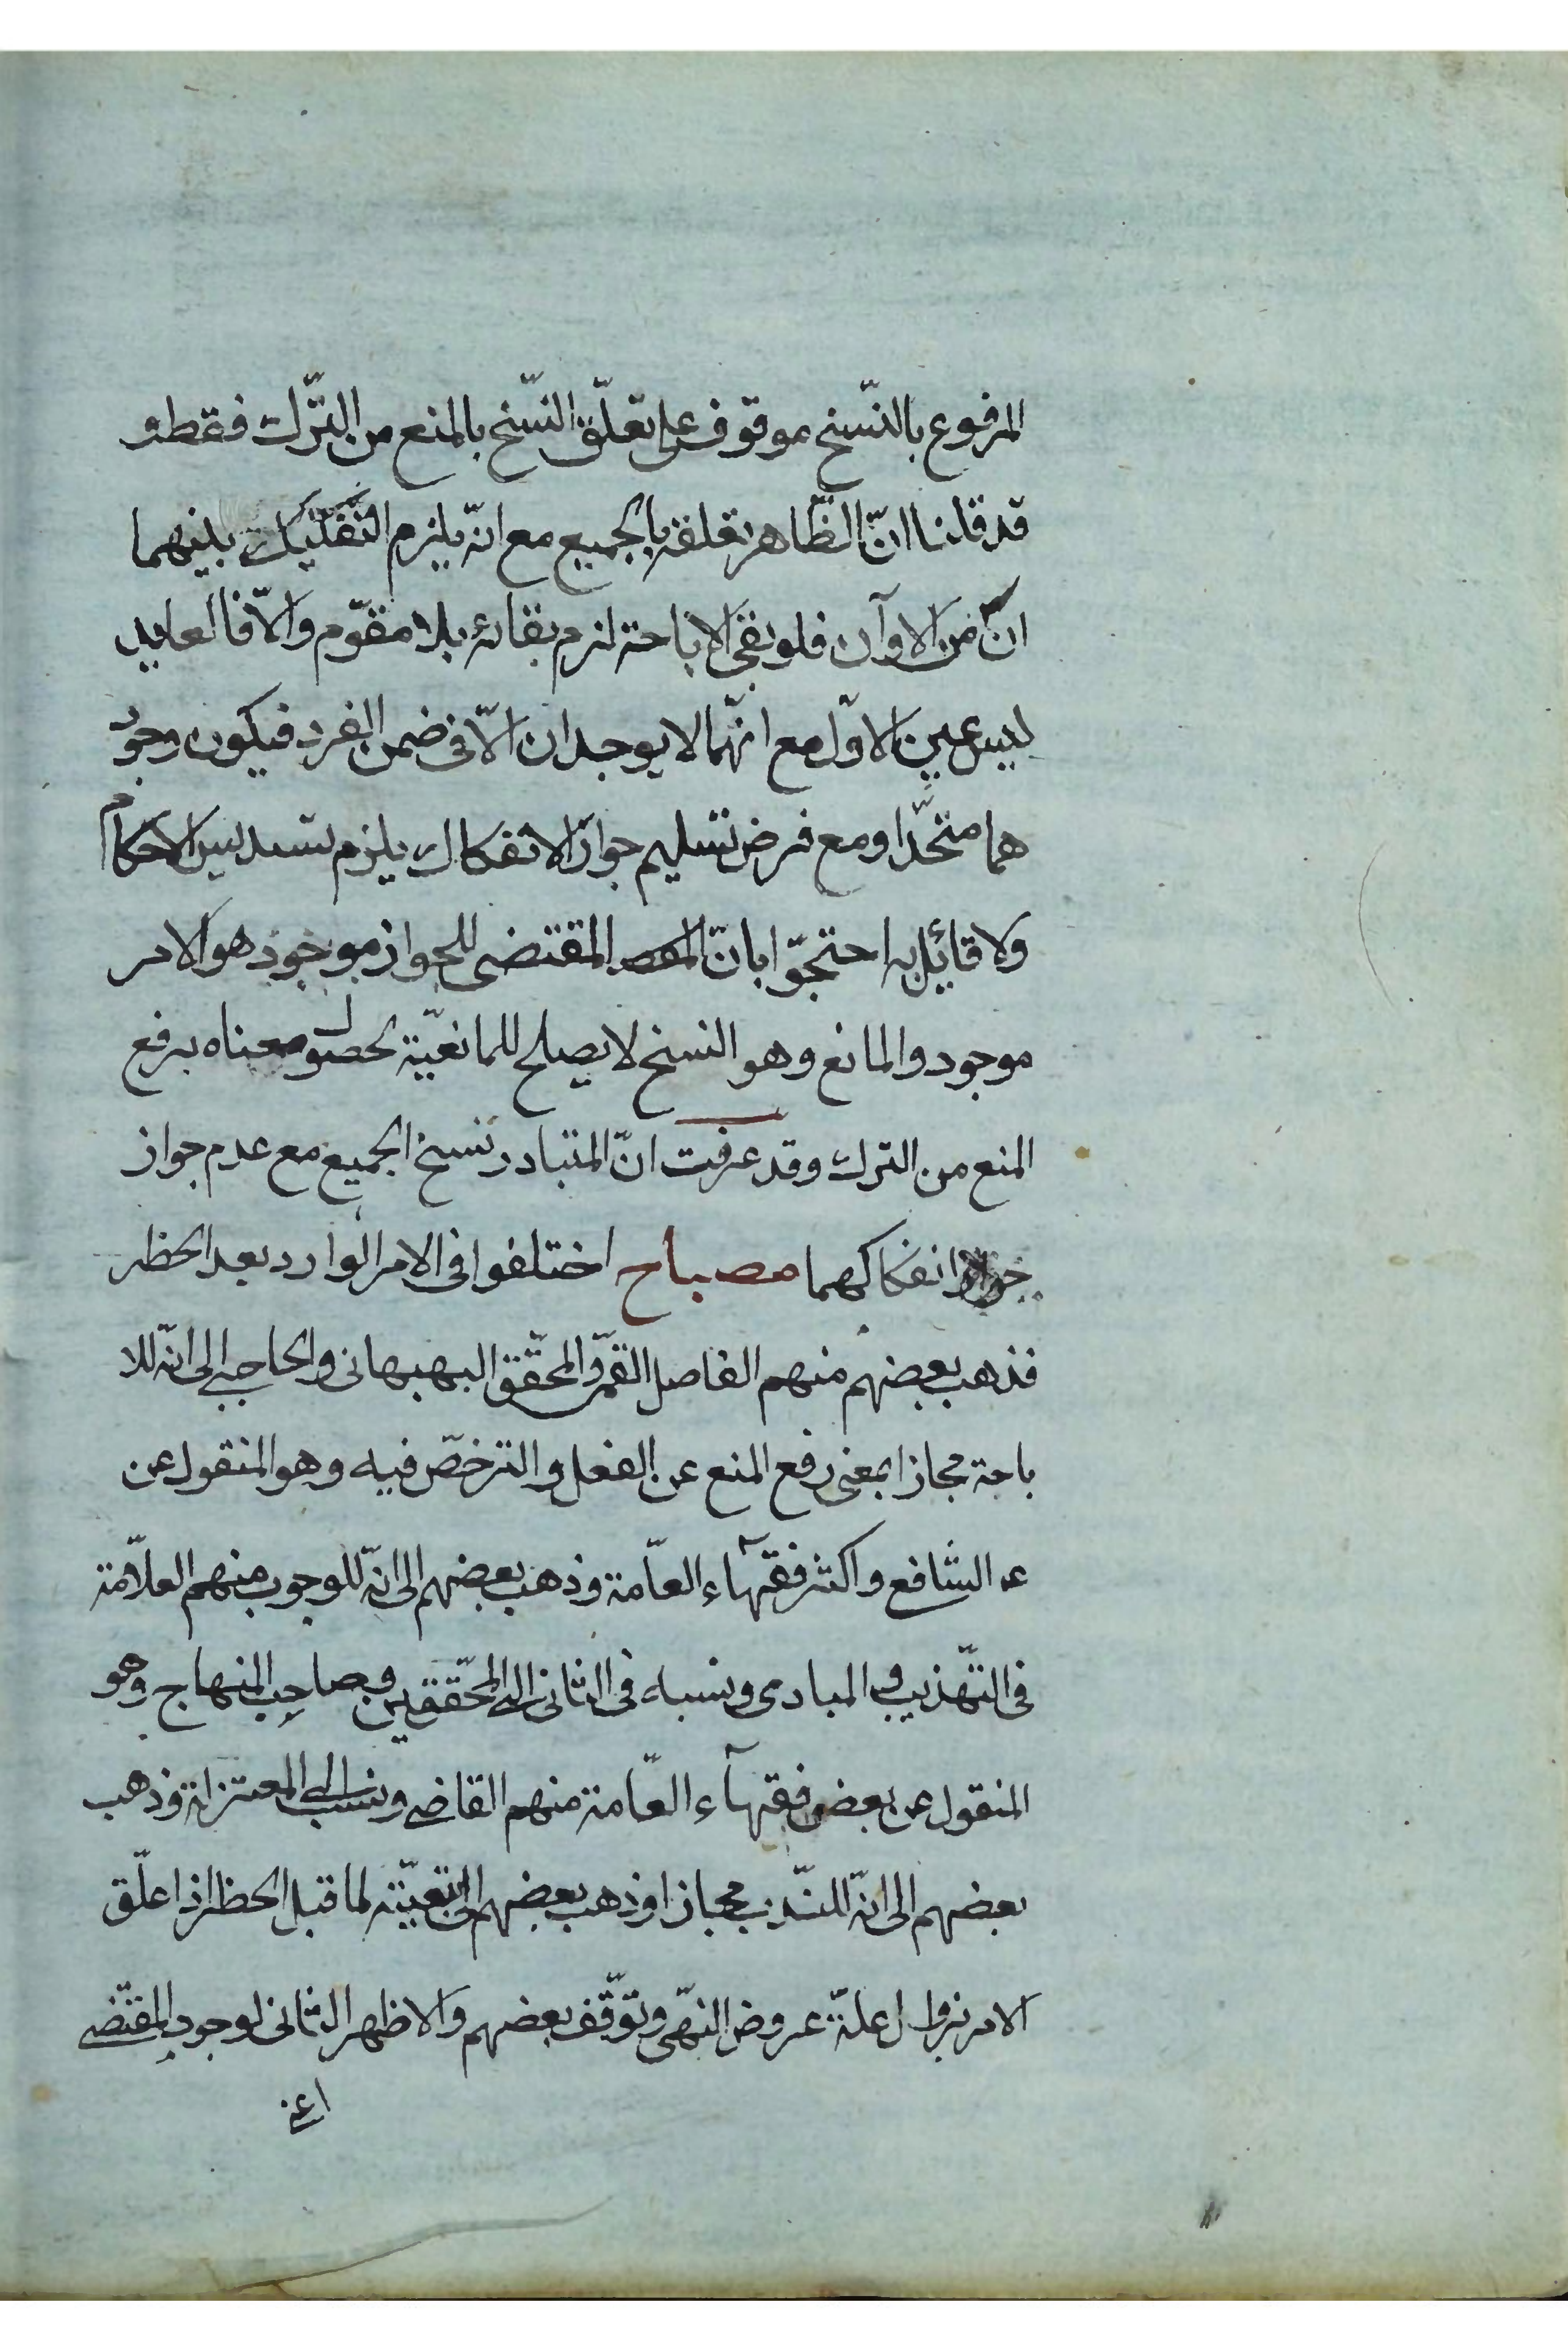 المرفوع بالنّسخ موقوف على تعلّق النّسخ بالمنع من التّرك فقط و
قد قلنا انّ الظّاهر تعلقه بالجميع مع انّه يلزم التّفكيك بينهما
انّ من الاوآن فلو بقى الاباحة لزم بقائه بلا مقوّم والّا فالعايد
ليس عين الاوّل مع انّهما لا يوجدان الّا فى ضمن الفرد فيكون وجود
هما متحّدا ومع فرض تسليم جواز الانفكاك يلزم تسديس الاحكام
ولا قائل به احتجّوا بانّ المقتضى للجواز موجود هو الامر
موجود والمانع وهو النسخ لا يصلح للمانعيّة لحصول معناه برفع
المنع من الترك وقد عرفت انّ المتبادر نسخ الجميع مع عدم جواز
انفكاكهما مصباح اختلفوا فى الامر الوارد بعد الحظر
فذهب بعضهم منهم الفاضل القمّى والمحقّق البهبهانى والحاجبى الى انّه للا
باحة مجازا بمعنى رفع المنع عن الفعل والترخصّ فيه وهو المنقول عن
عن الشافع واكثر فقهآء العامّة وذهب بعضهم الى انّه للوجوب منهم العلاّمة
فى التّهذيب و المبادى ونسبه فى الثانى الى المحقّقين وصاحب المنهاج وهو
المنقول عن بعض فقهآء العامّة منهم القاضى ونسب الى المعتزلة وذهب
بعضهم الى انّه للنّدب مجازا وذهب بعضهم الى تبعيّته لما قبل الحظر اذا علّق
الامر بزوال علّة عروض النهّى وتوّقف بعضهم والاظهر الثانى لوجود المقتضى
اعنى